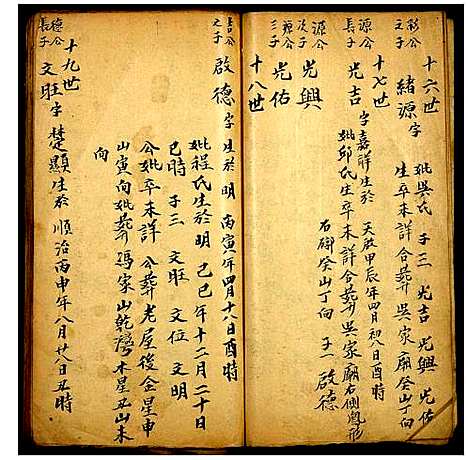 十六世
彩公之子 緒源 字
妣吳氏 子三 光吉 光興 光佑
生卒未詳合葬吳家廟癸山丁向
十七世
源公長子 光吉 字嘉祥生於 天啟甲辰年四月初八日酉時
妣邱氏生卒未詳合葬吳家廟右側兜形
石磜癸山丁向 子一 啟德
源公次子 光興
源公三子 光佑
十八世
吉公之子 啟德 字 生於明丙寅年四月十八日酉時
妣程氏生於明己巳年十二月二十日
巳時 子三 文旺 文位 文明
公妣卒未詳 公葬老屋後金星申
山寅向妣葬馮家山乾灣木星丑山未
向
十九世
德公長子 文旺 字楚顯生於順治丙申年八月廿八日丑時